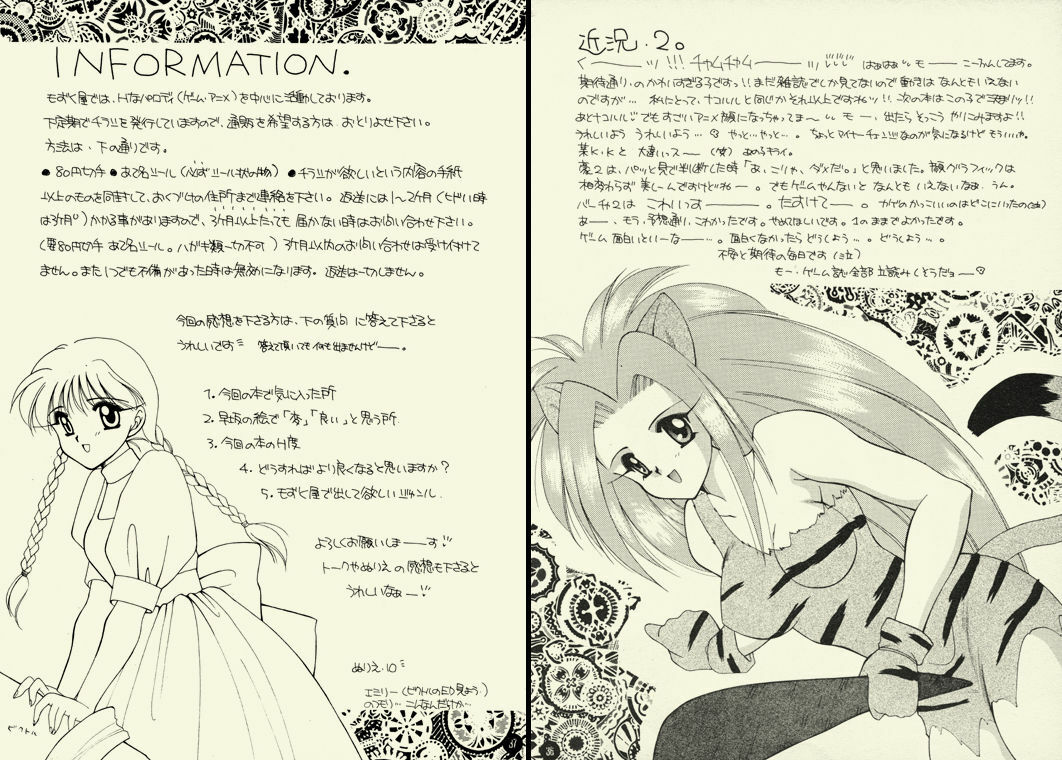 近況.2。
く――ッ!!! チャムチャム――ッ はぁはぁ モ―― こーふんしてます。
期待通りのかわいすぎる子ですっ!! まだ雑誌でしか見てないので動きは なんともいえない
のですが… 私にとって、ナコルルと同じかそれ以上ですねッ!! 次の本はこの子で決まりッ!!
あとナコルル すごいアニメ顔になっちゃってま〜 モー、出たら そっこー やりこみますよ!!
うれしいよう うれしいよう… やっと…やっと…。 ちょっとマイナーチェンジなのが気になるけど もういいや。
某K.Kと 大違いっスー (笑) ぬめりキライ。
は、パッと見で判断した時「あ、こりゃ、ダメだ。」と思いました。顔グラフィックは
相変わらず 美しーんですけどねー。 でもゲームやんないと なんとも いえないなぁ。うん。
バーチ2は こわいっすー――。たすけてー――。 かげがかっこいいのはどこにいったの(泣)
あ――、もう、予想通り、こわかったです。やめてほしいです。1のままでよかったです。
ゲーム 面白いといーなー―…。 面白くなかったら どうしよう…。 どうしよう…。
不安と期待の毎日です
もー、ゲーム誌 全部 立読みしそうだョ――
36
INFORMATION.
もずく屋では、Hなパロディ(ゲーム・アニメ)を中心に活動しております。
不定期でチラシを発行していますので、通販を希望する方は おとりよせ下さい。
方法は、下の通りです。
● 80円切手 ● あて名シール(必ずシール状の物) ● チラシが欲しいという内容の手紙
以上のものを同封して、おくづけの住所まで連絡を下さい。 返送には1〜2カ月(ヒドい時
は3カ月)かかる事がありますので、3カ月以上たっても 届かない時はお問い合わせ下さい。
(要80円切手 あて名シール。ハガキ類一切不可) 3カ月以内のお問い合わせは受け付けて
ません。また いつでも不備があった時は無効になります。 返送は一切しません。
今回の感想を下さる方は、下の質問 に答えて下さると
うれしいです 答えて頂いても 何も出ませんけどー―。
1. 今回の本で気に入った所
2. 早坂の絵で「変」「良い」と思う所
3. 今回の本のH度
4. どうすればより良くなると思いますか?
5. もずく屋で出して欲しいジャンル
よろしくお願いしまー―す!!
トークやぬりえ の感想も下さると
うれしいなぁ―!!
ぬりえ.10
エミリー(ピクトルのED見よう)
のつもり… こんなんだけか…
ピクトル
37